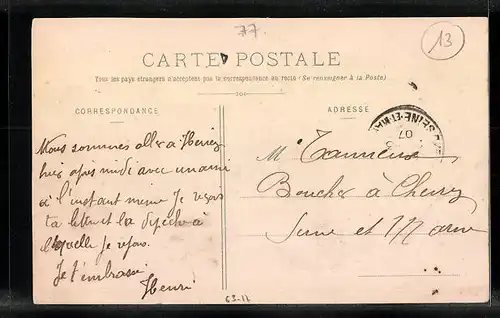 77.
13
CARTE POSTALE
Tous les pays étrangers n'acceptent pas la correspondance au recto (Se renseigner à la Poste)
CORRESPONDANCE
ADRESSE
SEINE-ET-MAR
07
Nous sommes allés à
hier après midi avec un ami
à l'instant même Je reçois
ta lettre et la dépêche à
laquelle je répons.
Je t'embrasse
Henri
M
Boucher à
Seine et Marne
63-11